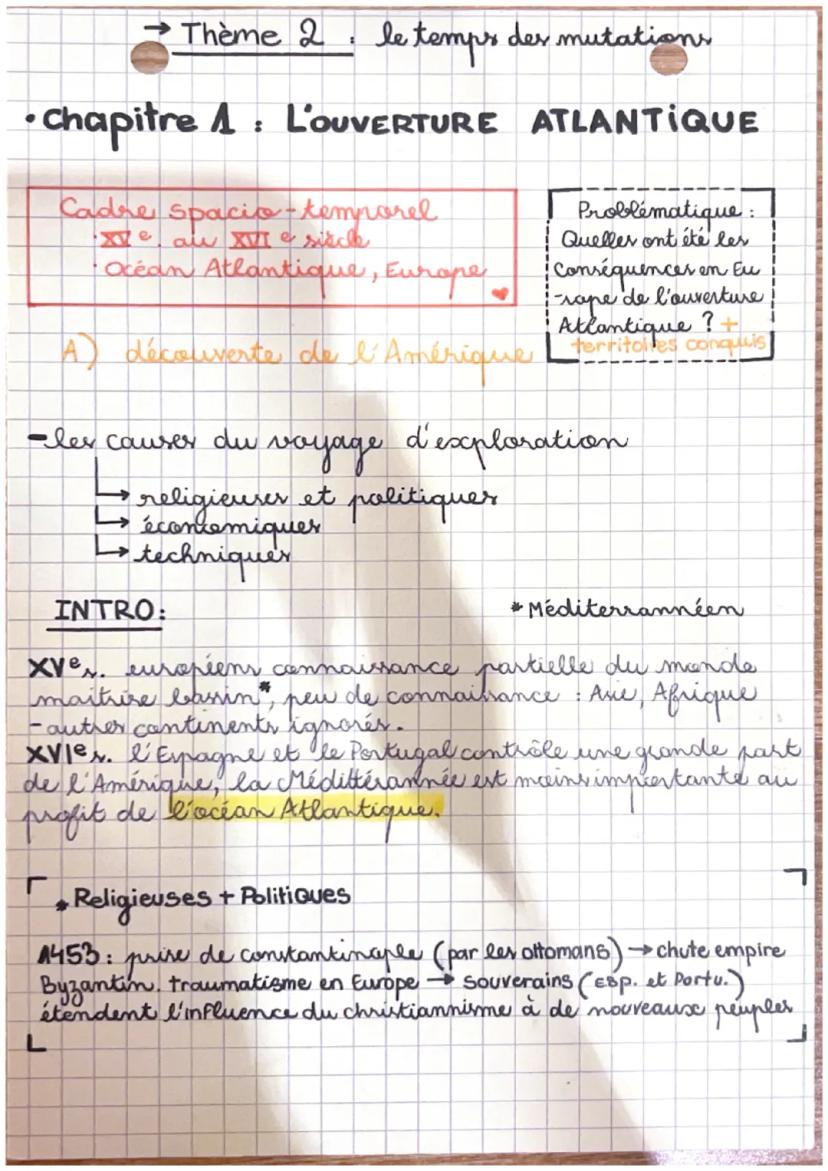 → Thème 2 : le temps des mutations
• Chapitre 1 : L'OUVERTURE ATLANTIQUE
Cadre spacio-temporel
• XVe au XVIe siècle
• Océan Atlantique, Europe
Problématique :
Quelles ont été les
Conséquences en Eu
-rope de l'ouverture
Atlantique ? +
territoires conquis
A) découverte de l'Amérique
- les causes du voyage d'exploration
↳ religieuses et politiques
↳ économiques
↳ techniques
INTRO :
* Méditerrannéen
XVe s. européens connaissance partielle du monde
maitrise bassin*, peu de connaissance : Asie, Afrique
- autres continents ignorés.
XVIe s. l'Espagne et le Portugal contrôle une grande part
de l'Amérique, la Méditterrannée est moins importante au
profit de l'océan Atlantique.
* Religieuses + Politiques
1453 : prise de constantinople (par les ottomans) → chute empire
Byzantin. traumatisme en Europe → souverains (Esp. et Portu.)
étendent l'influence du christiannisme à de nouveaux peuples